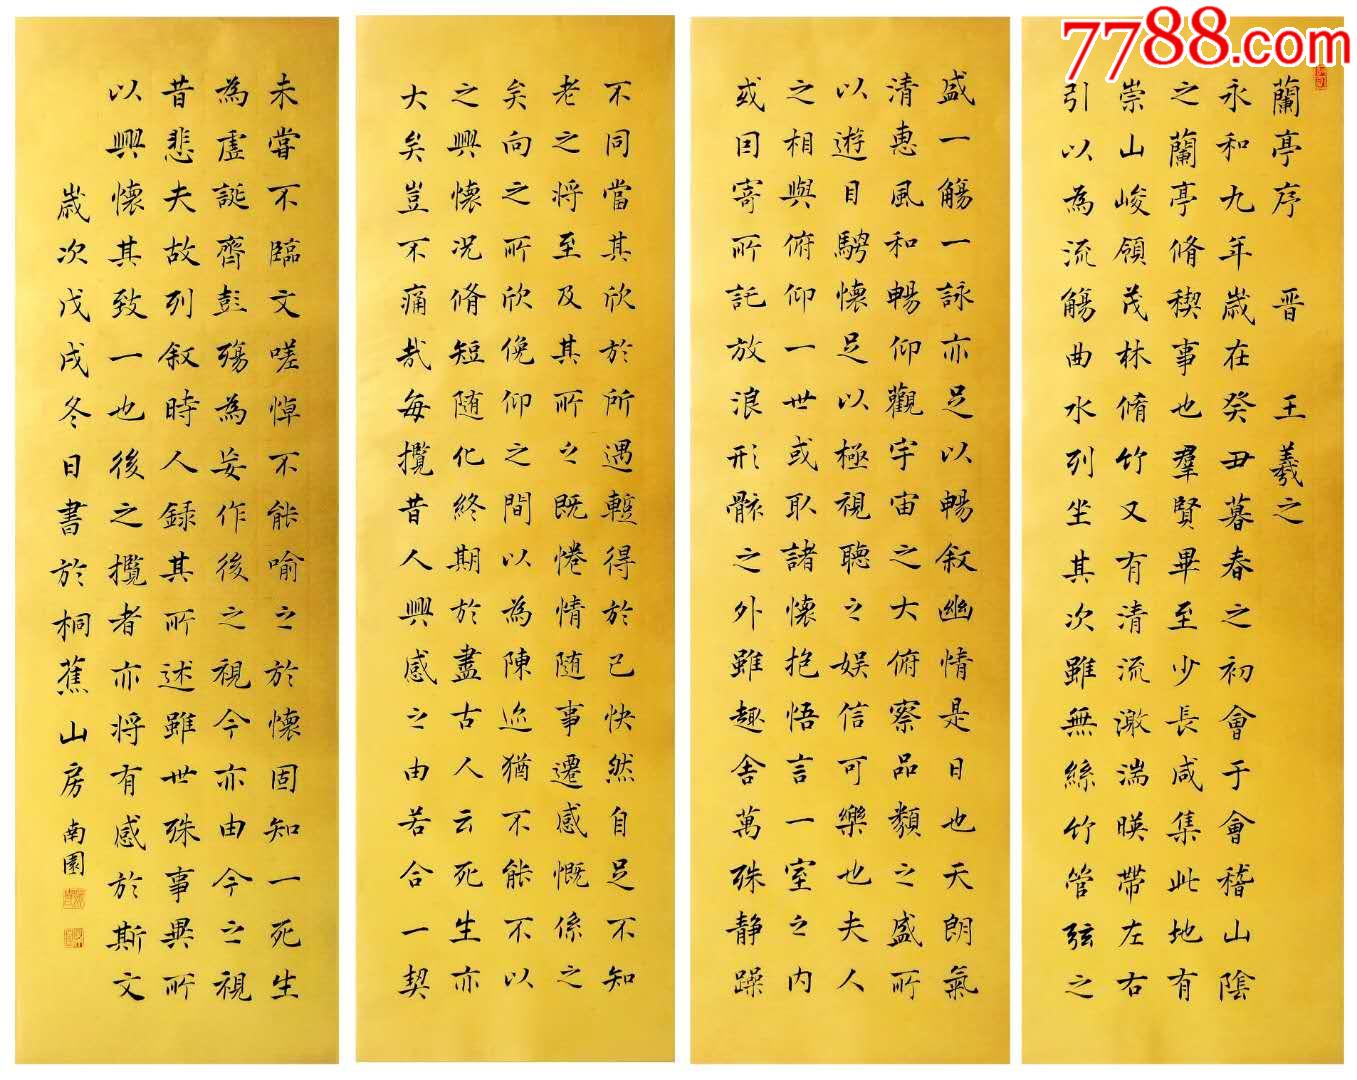 7788.com
蘭亭序 晋 王羲之
永和九年歲在癸丑暮春之初會于會稽山陰
之蘭亭脩稧事也羣賢畢至少長咸集此地有
崇山峻領茂林脩竹又有清流激湍暎帶左右
引以為流觴曲水列坐其次雖無絲竹管弦之
盛一觴一詠亦足以暢叙幽情是日也天朗氣
清惠風和暢仰觀宇宙之大俯察品類之盛所
以遊目騁懷足以極視聽之娱信可樂也夫人
之相與俯仰一世或取諸懷抱悟言一室之内
或因寄所託放浪形骸之外雖趣舍萬殊静躁
不同當其欣於所遇蹔得於己快然自足不知
老之将至及其所之既惓情随事遷感慨係之
矣向之所欣俛仰之間以為陳迹猶不能不以
之興懷况脩短随化終期於盡古人云死生亦
大矣豈不痛哉每攬昔人興感之由若合一契
未嘗不臨文嗟悼不能喻之於懷固知一死生
為虛誕齊彭殤為妄作後之視今亦由今之視
昔悲夫故列叙時人録其所述雖世殊事異所
以興懷其致一也後之攬者亦将有感於斯文
歲次戊戌冬日書於桐蕉山房 南園